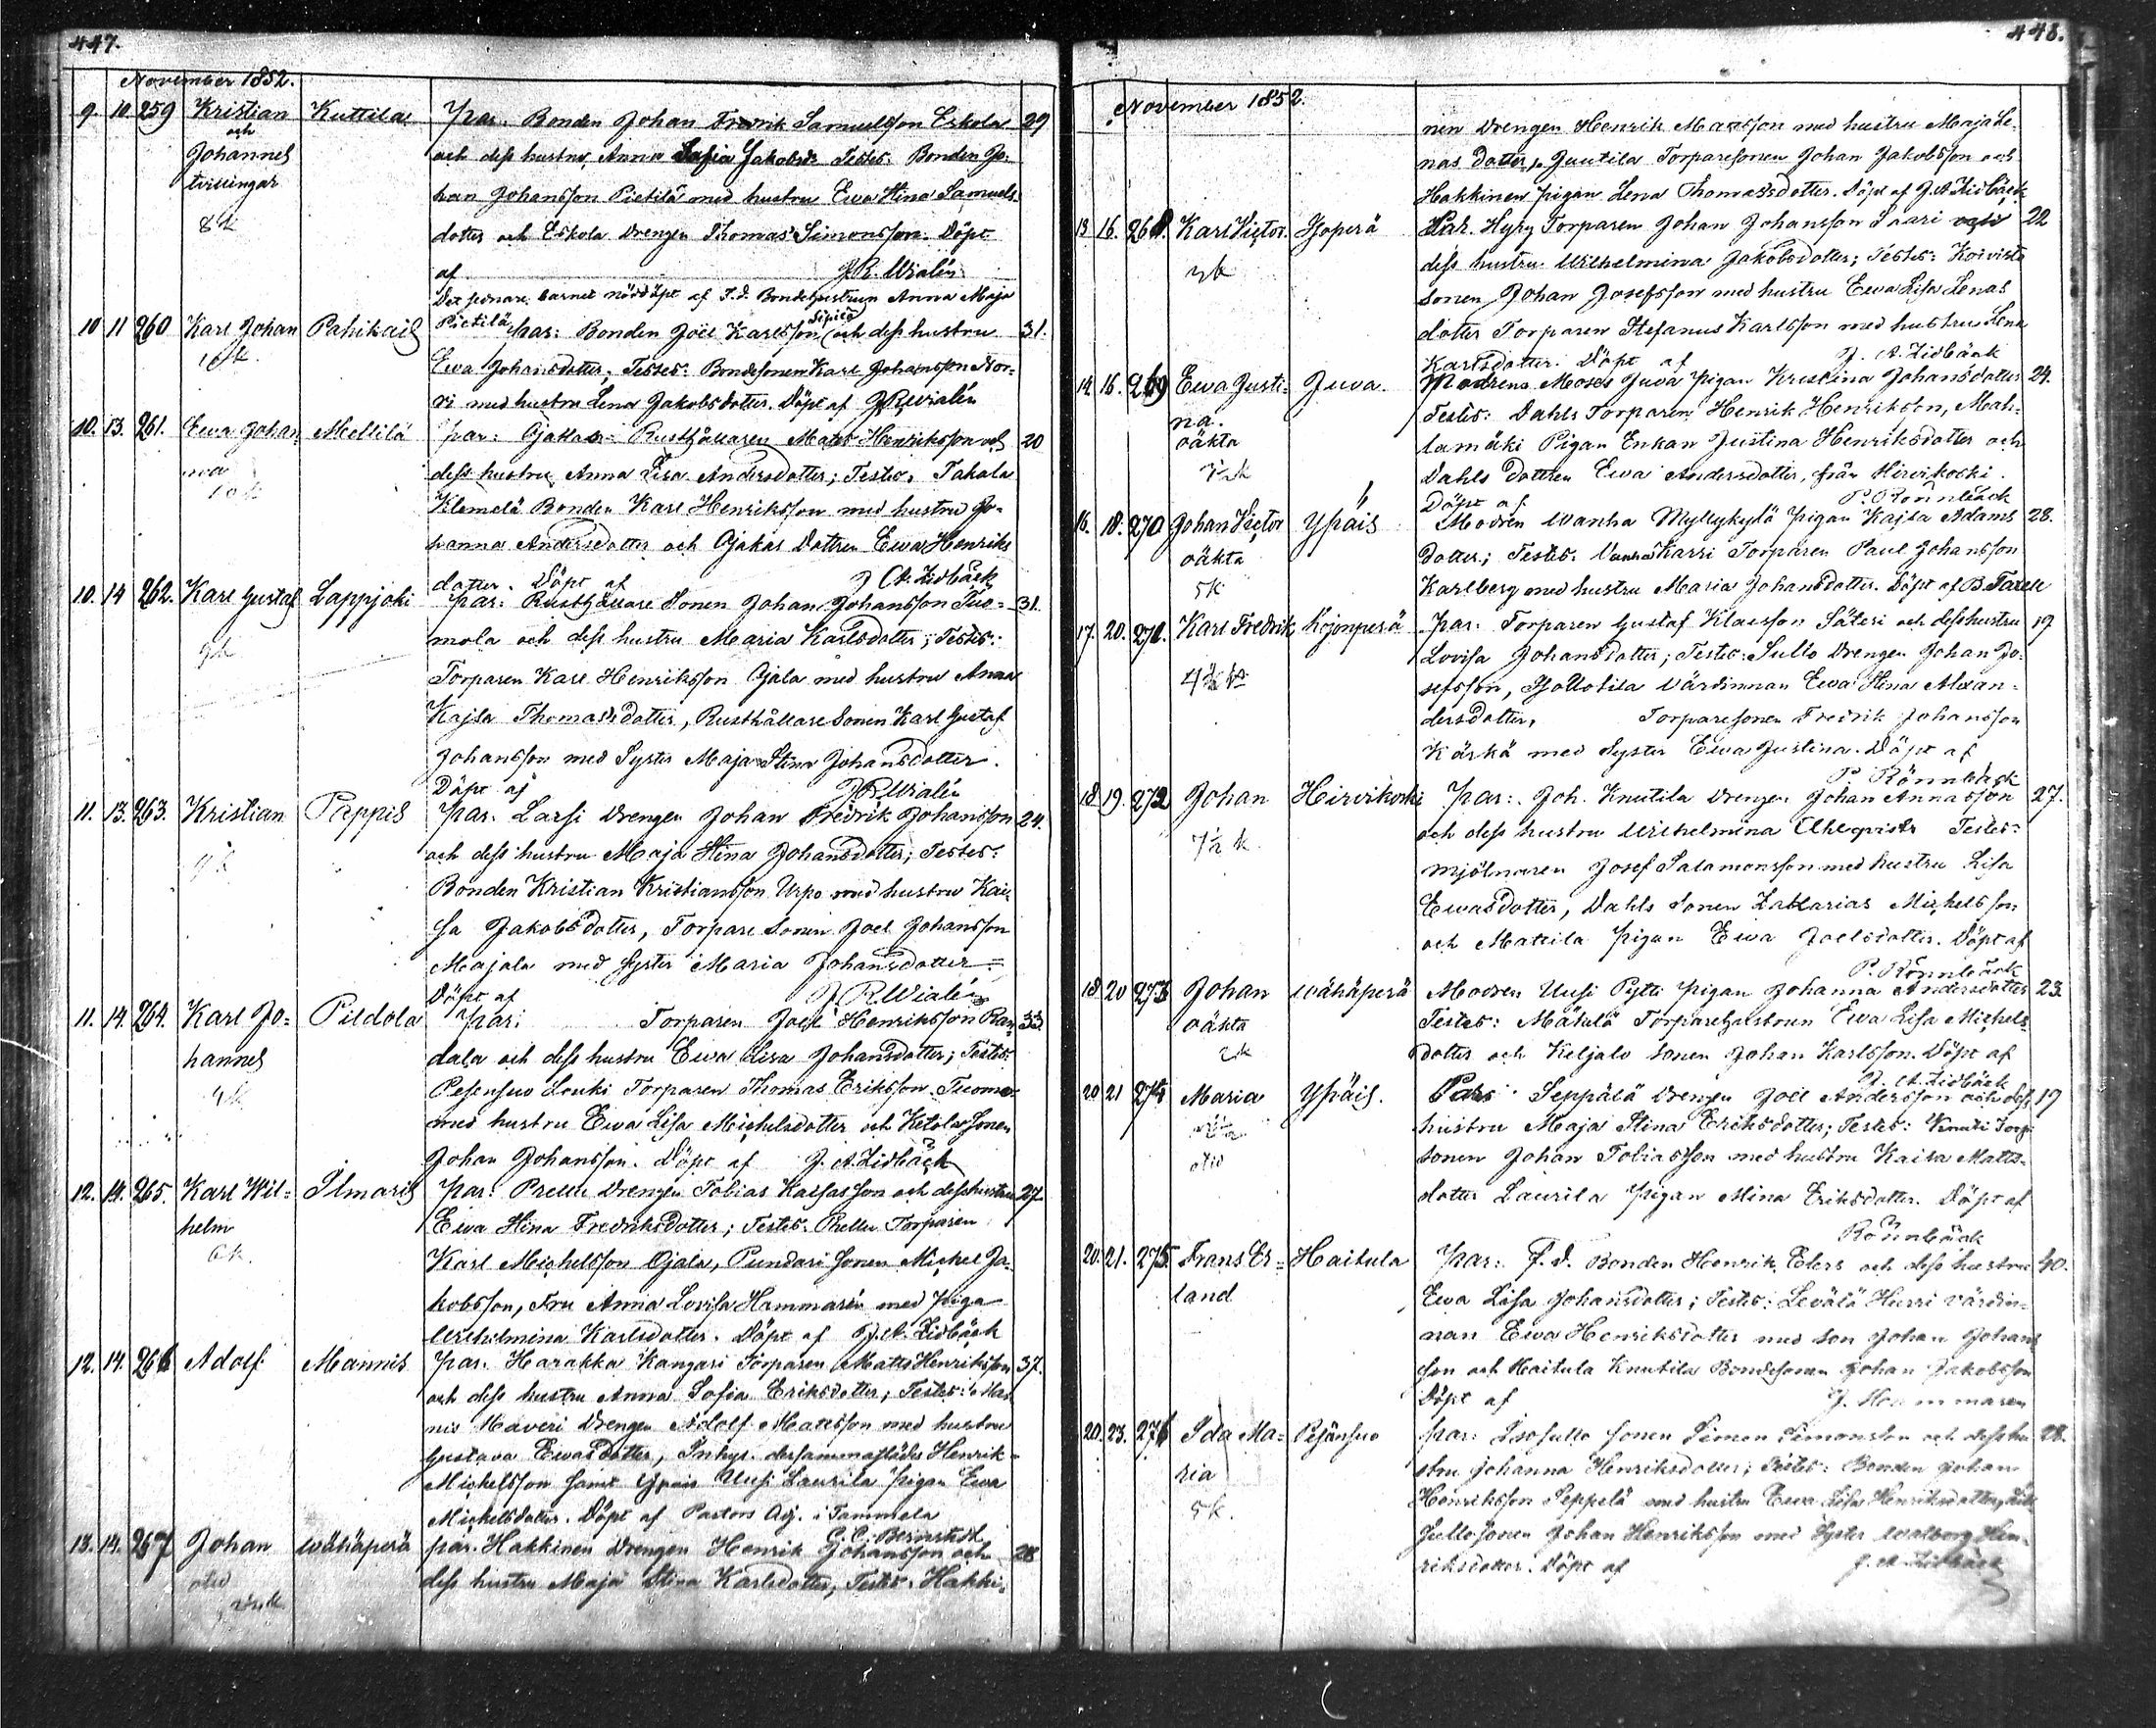 447.
November 1852.
9. 10 259 Kristian Kuttila Par. Bonden Johan Fredrik Samuelsson Eskola 29
och
Johannes
tvillingar
8 k
och dess hustru Anna Sofia Jakobsdr Testes: Bonden Jo-
han Johansson Pietilä med hustru Ewa Stina Samuels
dotter och Eskola Drengen Thomas Simonsson. Döpt
af J R. Wialén
Det senare barnet nöddöpt af F.d. Bondehustrun Anna Maja
Pietilä
10 11 260 Karl Johan Pahikais Par: Bonden Joel Karlsson Sipilä och dess hustru 31.
Ewa Johansdotter; Testes: Bondesonen Karl Johansson Nor-
ri med hustru Lena Jakobsdotter. Döpt af J R Wialén
10. 13. 261. Ewa Johan Mellilä Par: Ojakas Rusthållaren Matts Henriksson och 20
na
dess hustru Anna Lisa Andersdotter; Testes. Takala
Klemelä Bonden Karl Henriksson med hustru Jo-
hanna Andersdotter och Ojakas Dottren Ewa Henriks
dotter. Döpt af J. A. Lidbäck
10. 14 262. Karl Gustaf Lappjoki Par: Rusthållare Sonen Johan Johansson Tuo- 31.
9 k
mola och dess hustru Maria Karlsdotter; Testes:
Torparen Karl Henriksson Ojala med hustru Anna
Kajsa Thomasdotter, Rusthållare Sonen Karl Gustaf
Johansson med Syster Maja Stina Johansdotter.
Döpt af J R Wialén
11. 13. 263. Kristian Pappis Par. Larsi Drengen Johan Fredrik Johansson 24.
och dess hustru Maja Stina Johansdotter; Testes:
Bonden Kristian Kristiansson Urpo med hustru Kai-
sa Jakobsdotter, Torpare Sonen Joel Johansson
Majala med Syster Maria Johansdotter
Döpt af J. R. Wialén
11. 14. 264. Karl Jo- Pildola Par: Torparen Joel Henriksson Ran- 33.
hannes
4 k
dala och dess hustru Ewa Lisa Johansdotter; Testes:
Pesensuo Louki Torparen Thomas Eriksson Tuomo
med hustru Ewa Lisa Michelsdotter och Ketola Sonen
Johan Johansson. Döpt af J. A. Lidbäck
12. 14. 265. Karl Wil- Ilmaris Par: Prellu Drengen Tobias Kaifasson och dess hustru 27
helm
6 k.
Ewa Stina Fredriksdotter; Testes: Prellu Torparen
Karl Michelsson Ojala, Pundari Sonen Michel Ja-
kobsson, Fru Anna Lovisa Hammarén med Piga
Wilhelmina Karlsdotter. Döpt af J. A. Lidbäck
12. 14. 266 Adolf Mannis Par. Harakka Kangari Torparen Matts Henriksson 37.
och dess hustru Anna Sofia Eriksdotter; Testes: Man
nis Maveri Drengen Adolf Mattsson med hustru
Gustava Ewasdotter, Inhys. dersammastädes Henrik
Michelsson samt Ypäis Uusi Laurila Pigan Ewa
Michelsdotter. Döpt af Pastors Adj. i Tammela
13. 14. 267 Johan Wähäperä Par. Hakkinen Drengen Henrik Johansson och 28
dess hustru Maja Stina Karlsdotter, Testes. Hakki-
448.
November 1852.
nen Drengen Henrik Mattsson med hustru Maja Le-
nas dotter, Juutila Torparesonen Johan Jakobsson och
Hakkinen Pigan Lena Thomasdotter. Döpt af J. A. Lidbäck
13 16. 268. Karl Victor. Isoperä Par. Hyry Torparen Johan Johansson Saari och 22
dess hustru Wilhelmina Jakobsdotter; Testes: Koivisto
sonen Johan Josefsson med hustru Ewa Lisa Lenas
dotter Torparen Stefanus Karlsson med hustru Lena
Karlsdotter. Döpt af J. A. Lidbäck
14. 16. 269 Ewa Justi- Juva. Modren Moses Juva Pigan Kristina Johansdotter 24.
na.
oäkta
Testes: Dahls Torparen Henrik Henriksson, Mah-
lamäki Pigan Enkan Justina Henriksdotter och
Dahls dottren Ewa Andersdotter, från Hirvikoski.
Döpt af P. Rönnbäck
16. 18. 270 Johan Victor Ypäis Modren Wanha Myllykylä Pigan Kajsa Adams 28.
oäkta
5 k
dotter; Testes: Karri Torparen Paul Johansson
Karlberg med hustru Maria Johansdotter. Döpt af B. Taxell
17. 20. 271. Karl Fredrik Kojonperä Par: Torparen Gustaf Klaesson Säteri och dess hustru 19
Lovisa Johansdotter; Testes: Sullo Drengen Johan Jo-
sefsson, Värdinnan Ewa Stina Alexan-
dersdotter, Torparesonen Fredrik Johansson
Kärkä med Syster Ewa Justina. Döpt af
P. Rönnbäck
18 19. 272 Johan Hirvikoski Par: Joh. Knutila Drengen Johan Annasson 27.
7½ k.
och dess hustru Wilhelmina Ahlqvist Testes:
Mjölnaren Josef Salamonsson med hustru Lisa
Ewasdotter, Dahls Sonen Zakarias Michelsson
och Mattila Pigan Ewa Joelsdotter. Döpt af
P. Rönnbäck
18 20 273 Johan Wähäperä Modren Uusi Pytti Pigan Johanna Andersdotter 23.
oäkta
2 k
Testes: Mäkelä Torparehustrun Ewa Lisa Michels-
dotter och Keljalo Sonen Johan Karlsson. Döpt af
J. A. Lidbäck
20 21 274 Maria Ypäis. Par: Seppälä Drengen Joel Andersson och dess 19
hustru Maja Stina Eriksdotter; Testes: Knuti Torp.
sonen Johan Tobiasson med hustru Kaisa Matts-
dotter Laurila Pigan Mina Eriksdotter. Döpt af
Rönnbäck
20. 21. 275. Frans Er- Haitula Par: F. d. Bonden Henrik Elers och dess hustru 40.
land
Ewa Lisa Johansdotter; Testes: Levälä Hurri värdin-
nan Ewa Henriksdotter med Son Johan Johans
son och Haitula Knutila Bondesonen Johan Jakobsson
Döpt af J. Hammaren
20. 23. 276 Ida Ma- Pejänsuo Par: Isosullo Sonen Simon Simonsson och dess hu 28.
ria
5 k.
stru Johanna Henriksdotter; Testes: Bonden Johan
Henriksson Seppelä med hustru Ewa Lisa Henriksdotter,
Sullo Sonen Johan Henriksson med Syster Walborg Hen-
riksdotter. Döpt af J. A. Lidbäck